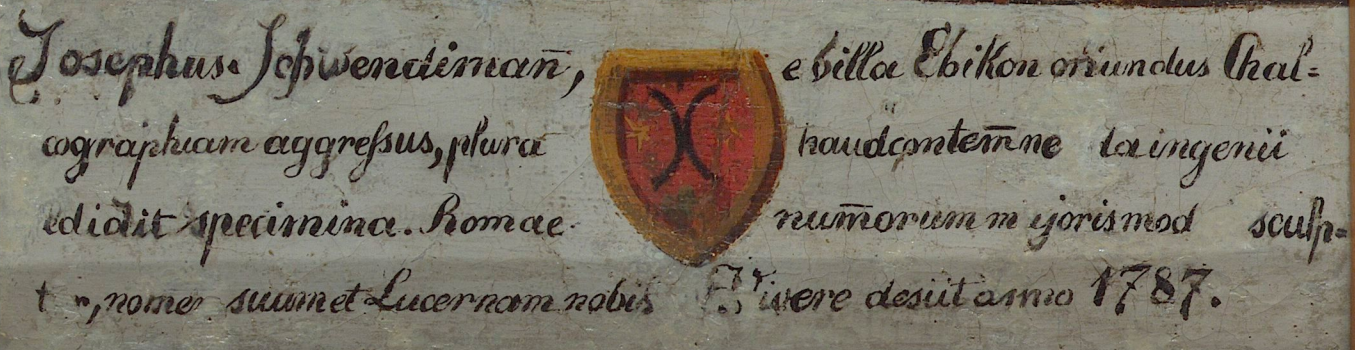 Josephus Schwendimañ, e villa Ebikon oriundus Chal=
cographiam aggressus, plura haud contem̃ne da ingenii
edidit specimina. Romae num̃orum m joris mod sculp=
t r, nome suum et Lucernam nobis Vivere desiit anno 1787.